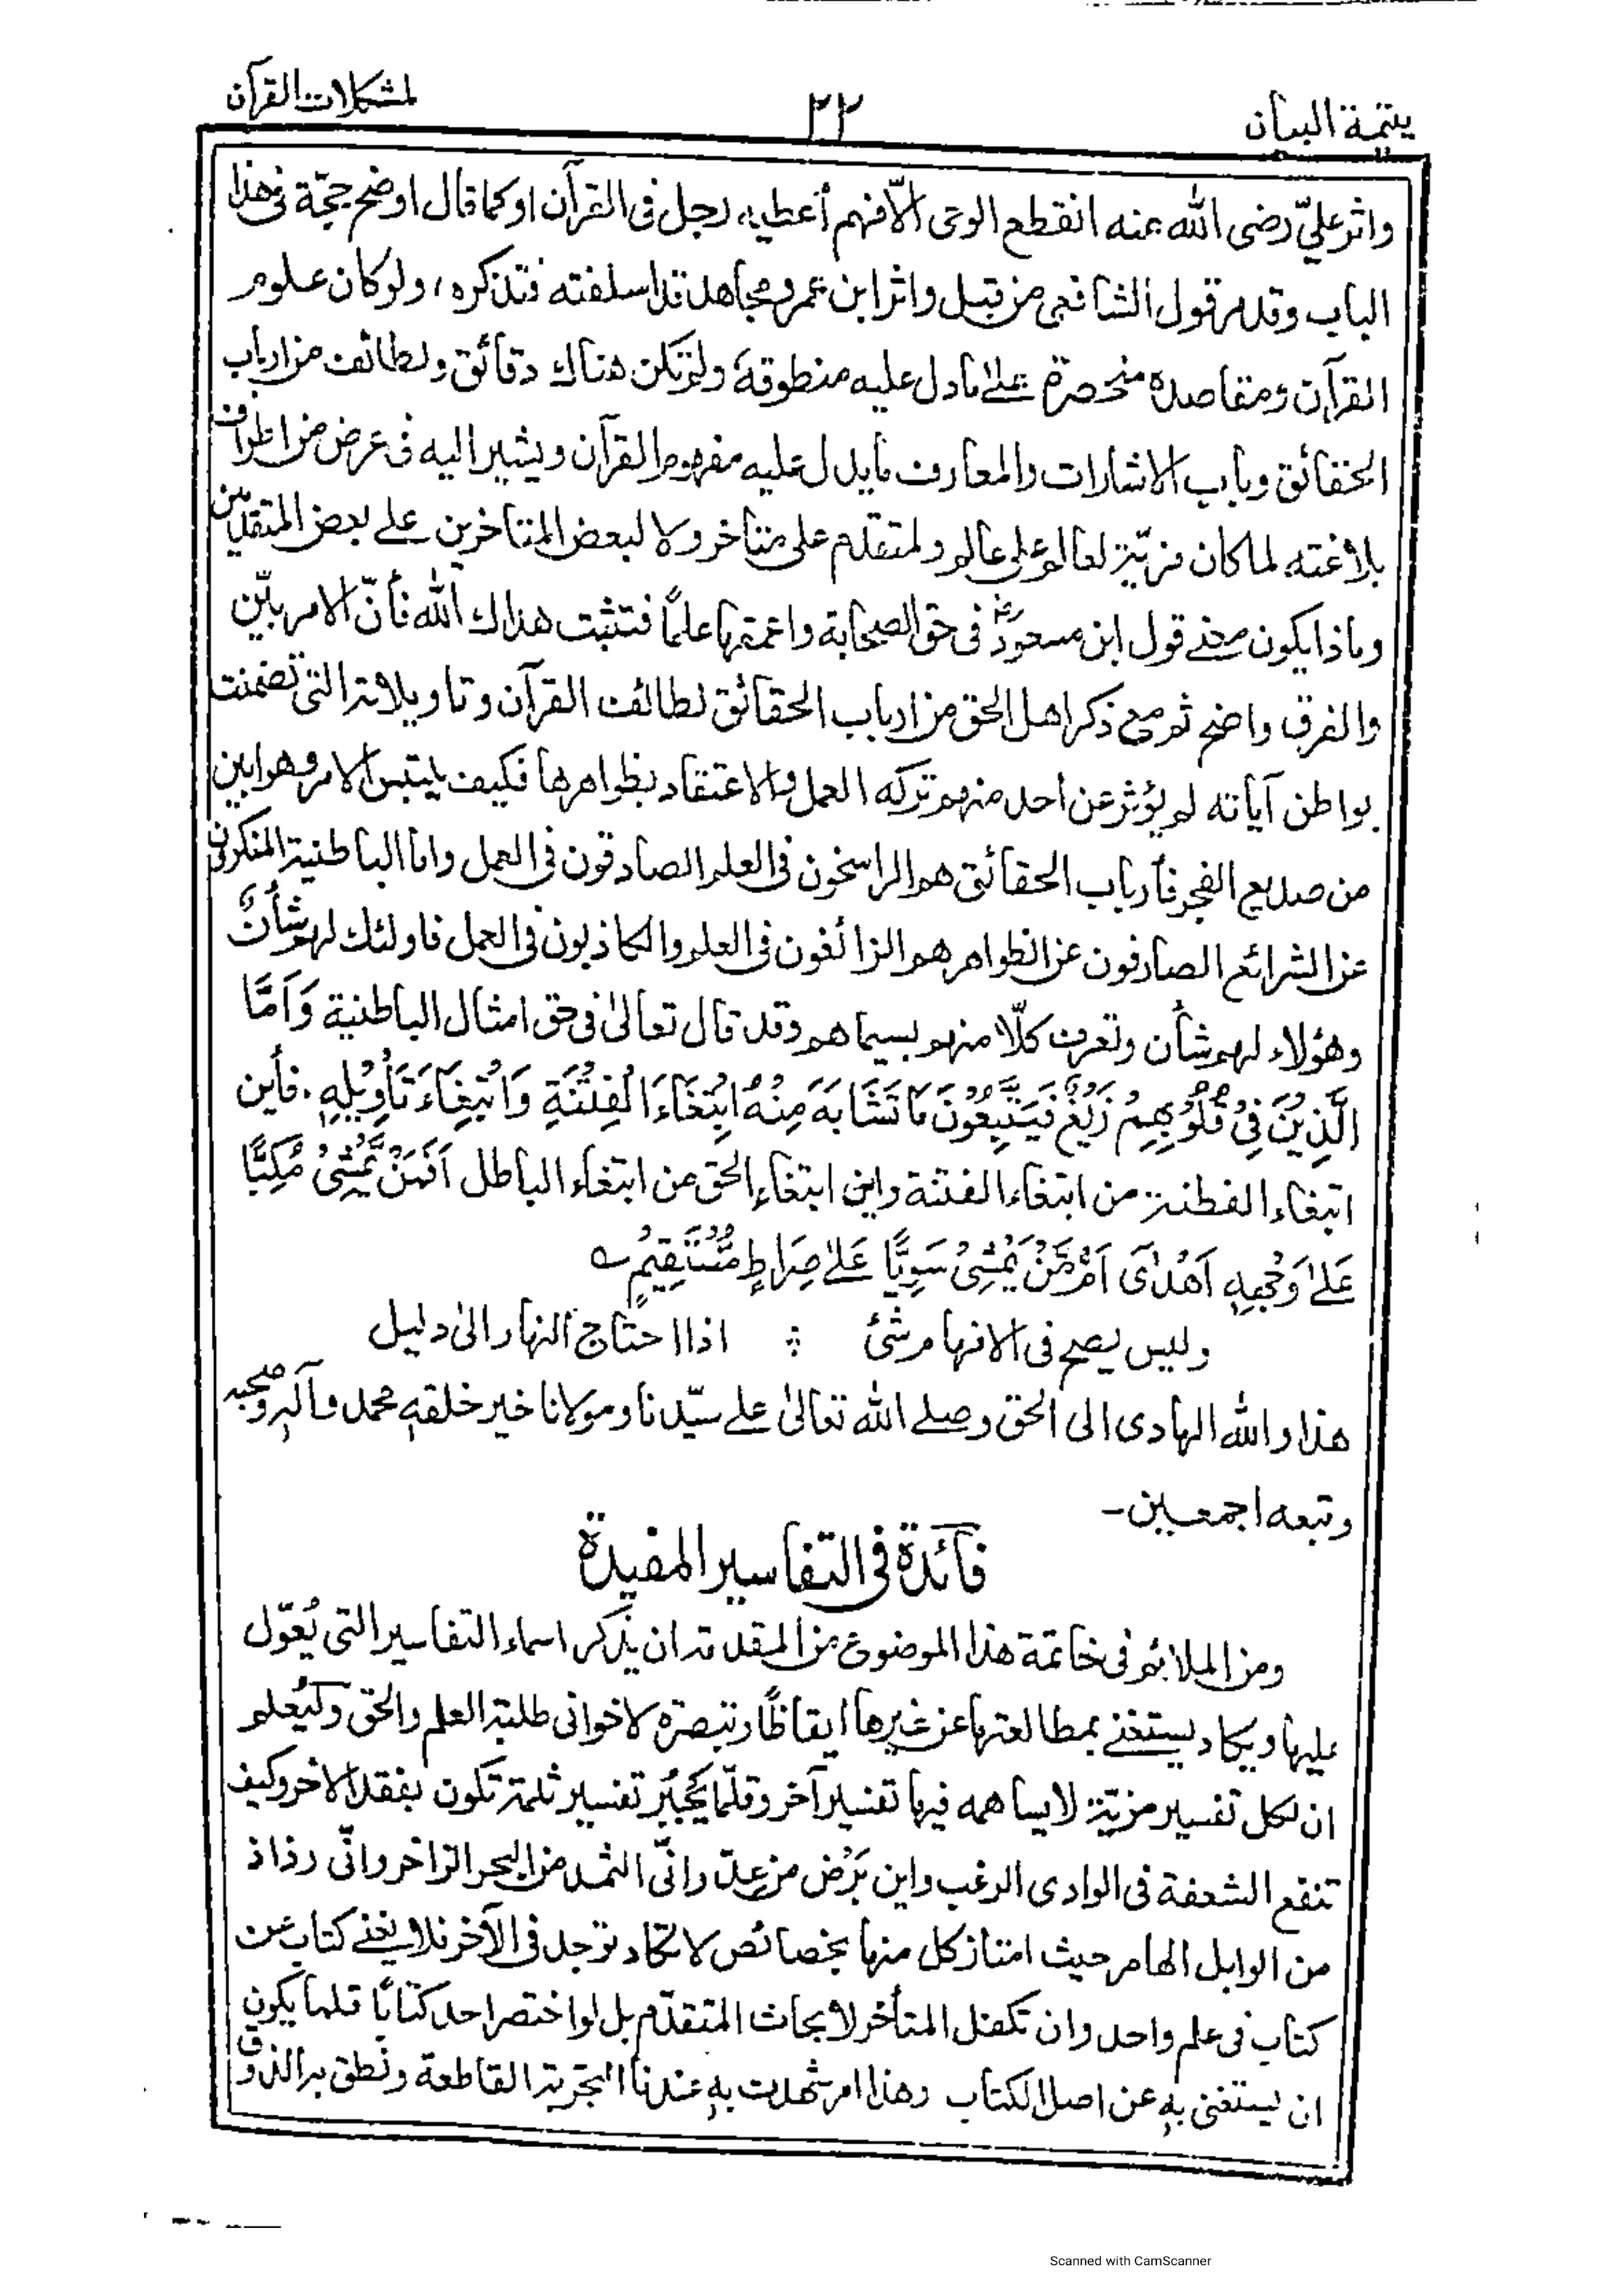 يتيمة البيان ٢٢ لمشكلات القرآن
واثر عليّ رضى الله عنه انقطع الوحى الّا فهم أعطيه رجل فى القرآن او كما قال اوضح حجّة فى هذا
الباب وقد مر قول الشافعى من قبل واثر ابن عمر و مجاهد قد اسلفته فتذكره، ولو كان علوم
القرآن ومقاصده منحصرة على ما دل عليه منطوقه ولم تكن هناك دقائق ولطائف من ارباب
الحقائق وباب الاشارات والمعارف ما يدل عليه مفهوم القرآن ويشير اليه فى عرض من اطراف
بلاغته لما كان مزيّة لعالم على عالم ولمتقدم على متأخر ولا لبعض المتأخرين على بعض المتقدمين
وماذا يكون معنے قول ابن مسعودؓ فى حق الصحابة واعمقها علمًا فتثبت هداك الله فأنّ الامر بيّن
والفرق واضح ثم مع ذكر اهل الحق من ارباب الحقائق لطائف القرآن وتاويلاته التى تضمنت
بواطن آياته لم يؤثر عن احد منهم تركه العمل والاعتقاد بظواهرها فكيف يلتبس الامر وهو ابين
من صديع الفجر فأرباب الحقائق هم الراسخون فى العلم الصادقون فى العمل واما الباطنية المنكرون
عن الشرائع الصارفون عن الظواهر هم الزائغون فى العلم والكاذبون فى العمل فاولئك لهم شأنٌ
وهؤلاء لهم شأن وتعرف كلّا منهم بسيماهم وقد قال تعالىٰ فى حق امثال الباطنية وَاَمَّا
الَّذِيْنَ فِىْ قُلُوْبِهِمْ زَيْغٌ فَيَتَّبِعُوْنَ مَا تَشَابَهَ مِنْهُ ابْتِغَاءَ الْفِتْنَةِ وَابْتِغَاءَ تَأْوِيْلِهٖ. فأين
ابتغاء الفطنة من ابتغاء الفتنة واين ابتغاء الحق من ابتغاء الباطل اَفَمَنْ يَّمْشِىْ مُكِبًّا
عَلىٰ وَجْهِهٖ اَهْدٰى اَمَّنْ يَّمْشِىْ سَوِيًّا عَلىٰ صِرَاطٍ مُّسْتَقِيْمٍ
وليس يصح فى الافهام شئ ؞ اذا احتاج النهار الىٰ دليل
هذا والله الهادى الى الحق وصلے الله تعالىٰ علے سيّدنا ومولانا خير خلقهٖ محمد وآلهٖ وصحبه
وتبعه اجمعين-
فائدة فى التفاسير المفيدة
ومن الملائم فى خاتمة هذا الموضوع من المقدمة ان يذكر اسماء التفاسير التى يُعوّل
عليها ويكاد يستغنے بمطالعتها عن غيرها ايقاظًا وتبصرة لاخوانى طلبة العلم والحق وليُعلم
ان لكل تفسير مزيّة لا يساهمه فيها تفسير آخر وقلّما يَجبُر تفسير ثلمة تكون بفقد الاخر وكيف
تنفع الشعفة فى الوادى الرغب واين بَرْض من عِدّ وانّى الثمد من البحر الزاخر وانّى رذاذ
من الوابل الهامر حيث امتاز كل منها بخصائص لا تكاد توجد فى الآخر فلا يغنے كتاب عن
كتاب فى علم واحد وان تكفل المتأخر لابحاث المتقدّم بل لو اختصر احد كتابًا قلما يكون
ان يستغنى بهٖ عن اصل الكتاب وهذا امر شهدت بهٖ عندنا التجربة القاطعة ونطق به الذوق
Scanned with CamScanner